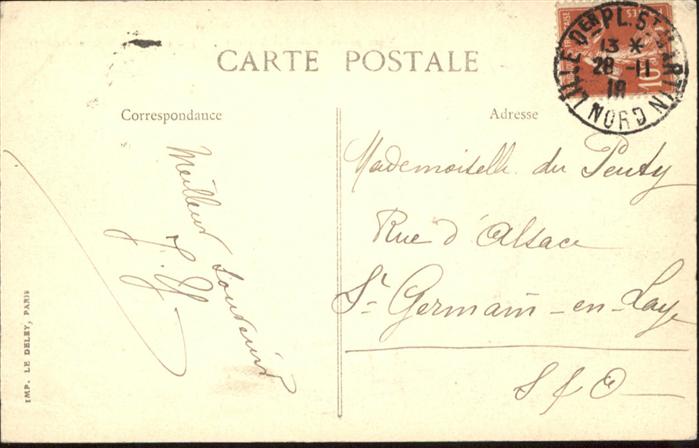 CARTE POSTALE
LILLE Den PL. St MARTIN
13 *
28 - 11
18
NORD
10
Correspondance
Meilleur Souvenir
Adresse
Mademoiselle du Penty
Rue d'Alsace
St Germain-en-Laye
S & O
IMP. LE DELEY, PARIS